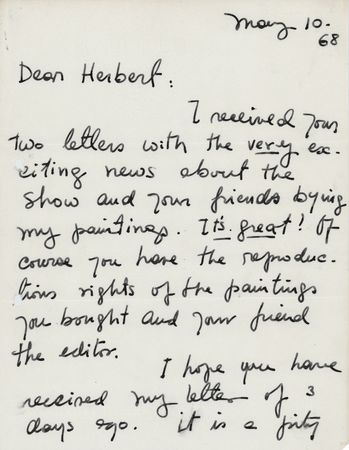 May 10.
68
Dear Herbert:
I received your
two letters with the very ex-
citing news about the
show and your friends bying
my paintings. It's great! Of
course you have the reproduc-
tions rights of the paintings
you bought and your friend
the editor.
I hope you have
received my letter of 3
days ago. it is a pity